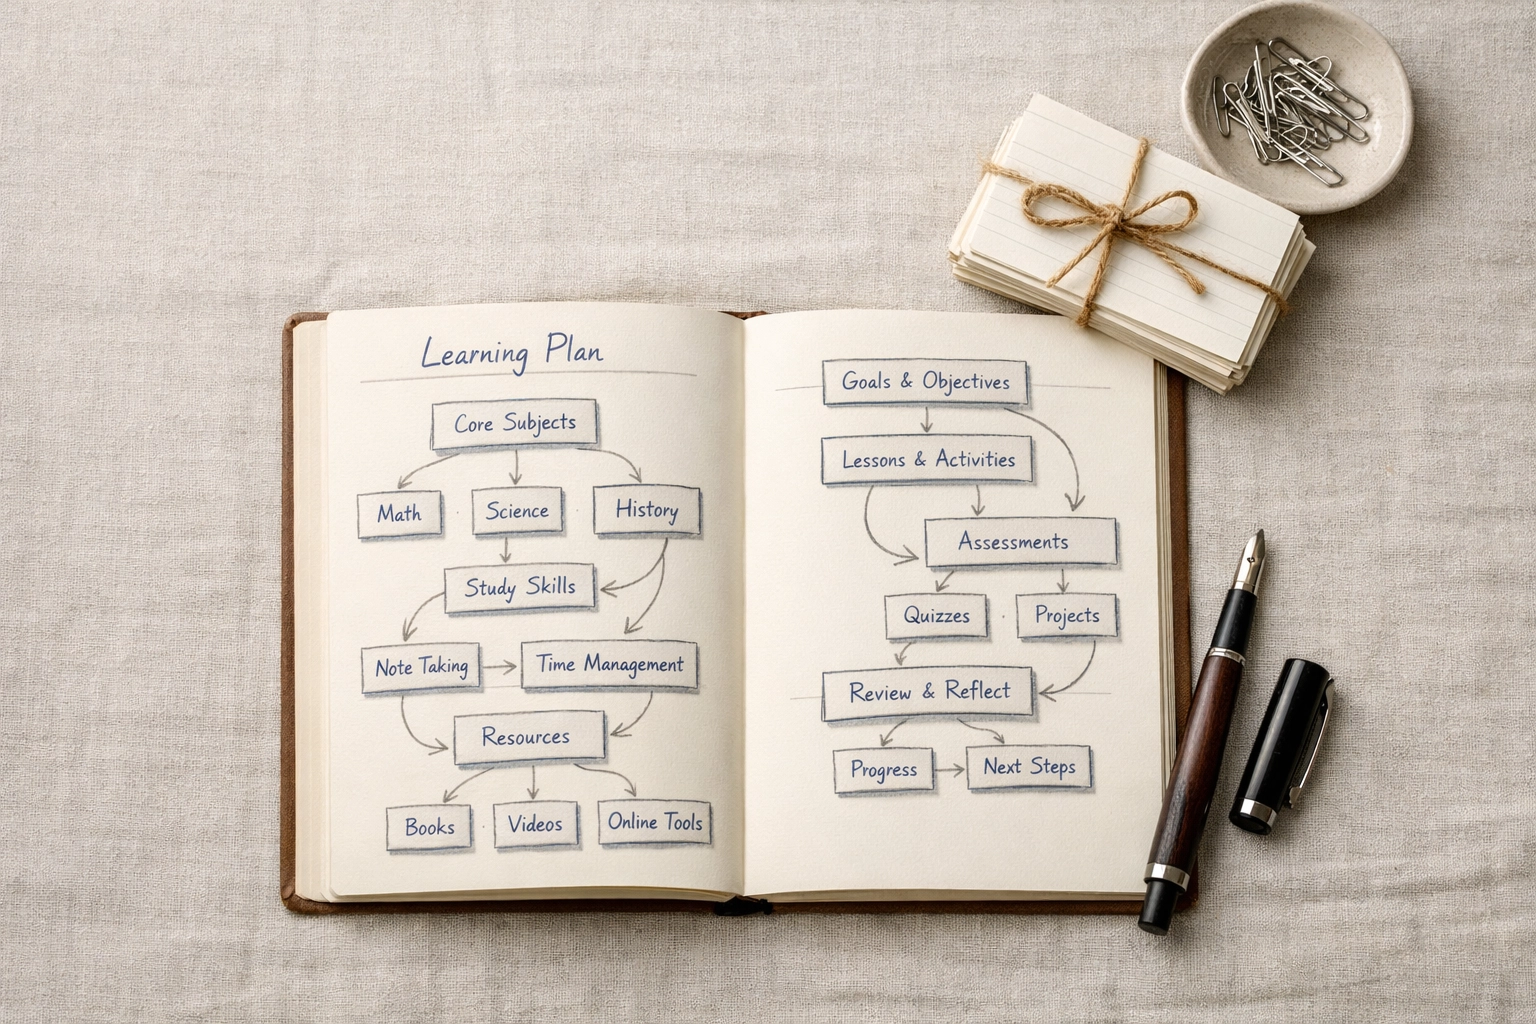 Learning Plan
Core Subjects
Math
Science
History
Study Skills
Note Taking
Time Management
Resources
Books
Videos
Online Tools
Goals & Objectives
Lessons & Activities
Assessments
Quizzes
Projects
Review & Reflect
Progress
Next Steps